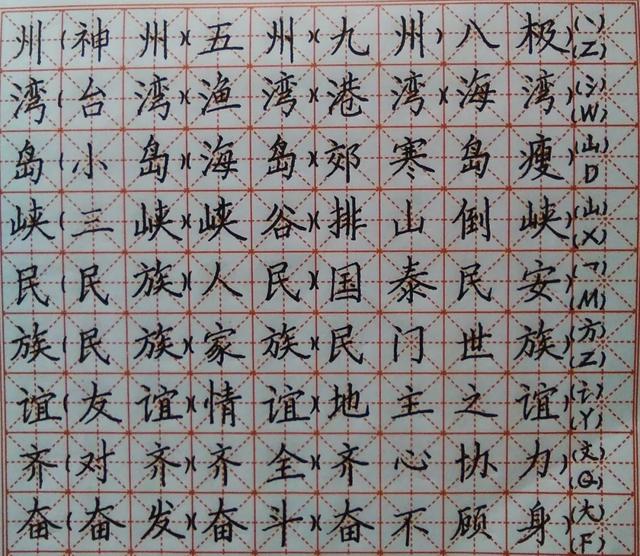 州(神州)(五州)(九州)八极(丶)(Z)
湾(台湾)(渔湾)(港湾)(海湾)(氵)(W)
岛(小岛)(海岛)(郊寒岛瘦)(山)D
峡(三峡)(峡谷)(排山倒峡)(山)(X)
民(民族)(人民)(国泰民安)(㇕)(M)
族(民族)(家族)(民门世族)(方)(Z)
谊(友谊)(情谊)(地主之谊)(讠)(Y)
齐(对齐)(齐全)(齐心协力)(文)(Q)
奋(奋发)(奋斗)(奋不顾身)(大)(F)